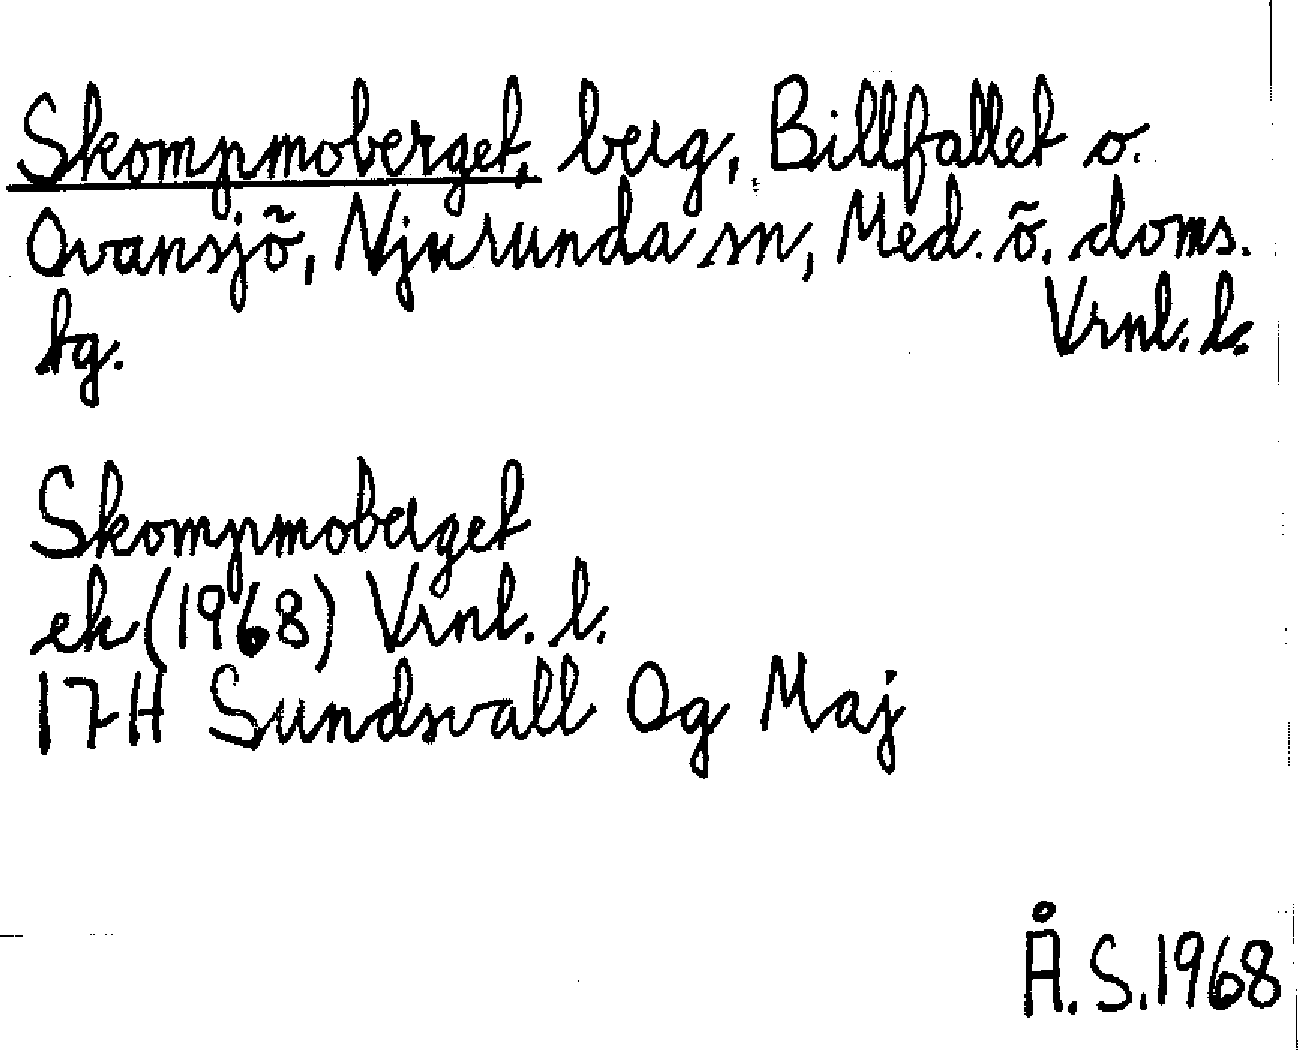 Skompmoberget, berg, Billfallet o.
Ovansjö, Njurunda sn, Med. ö. doms.
tg. Vrnl. l.
Skompmoberget
ek (1968) Vrnl. l.
17H Sundsvall Og Maj
Å.S.1968